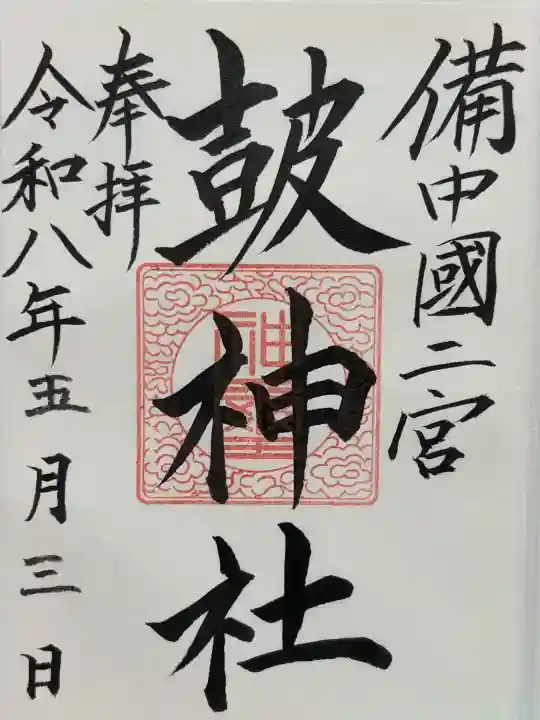 備中國二宮
鼓神社
奉拝
令和八年五月三日